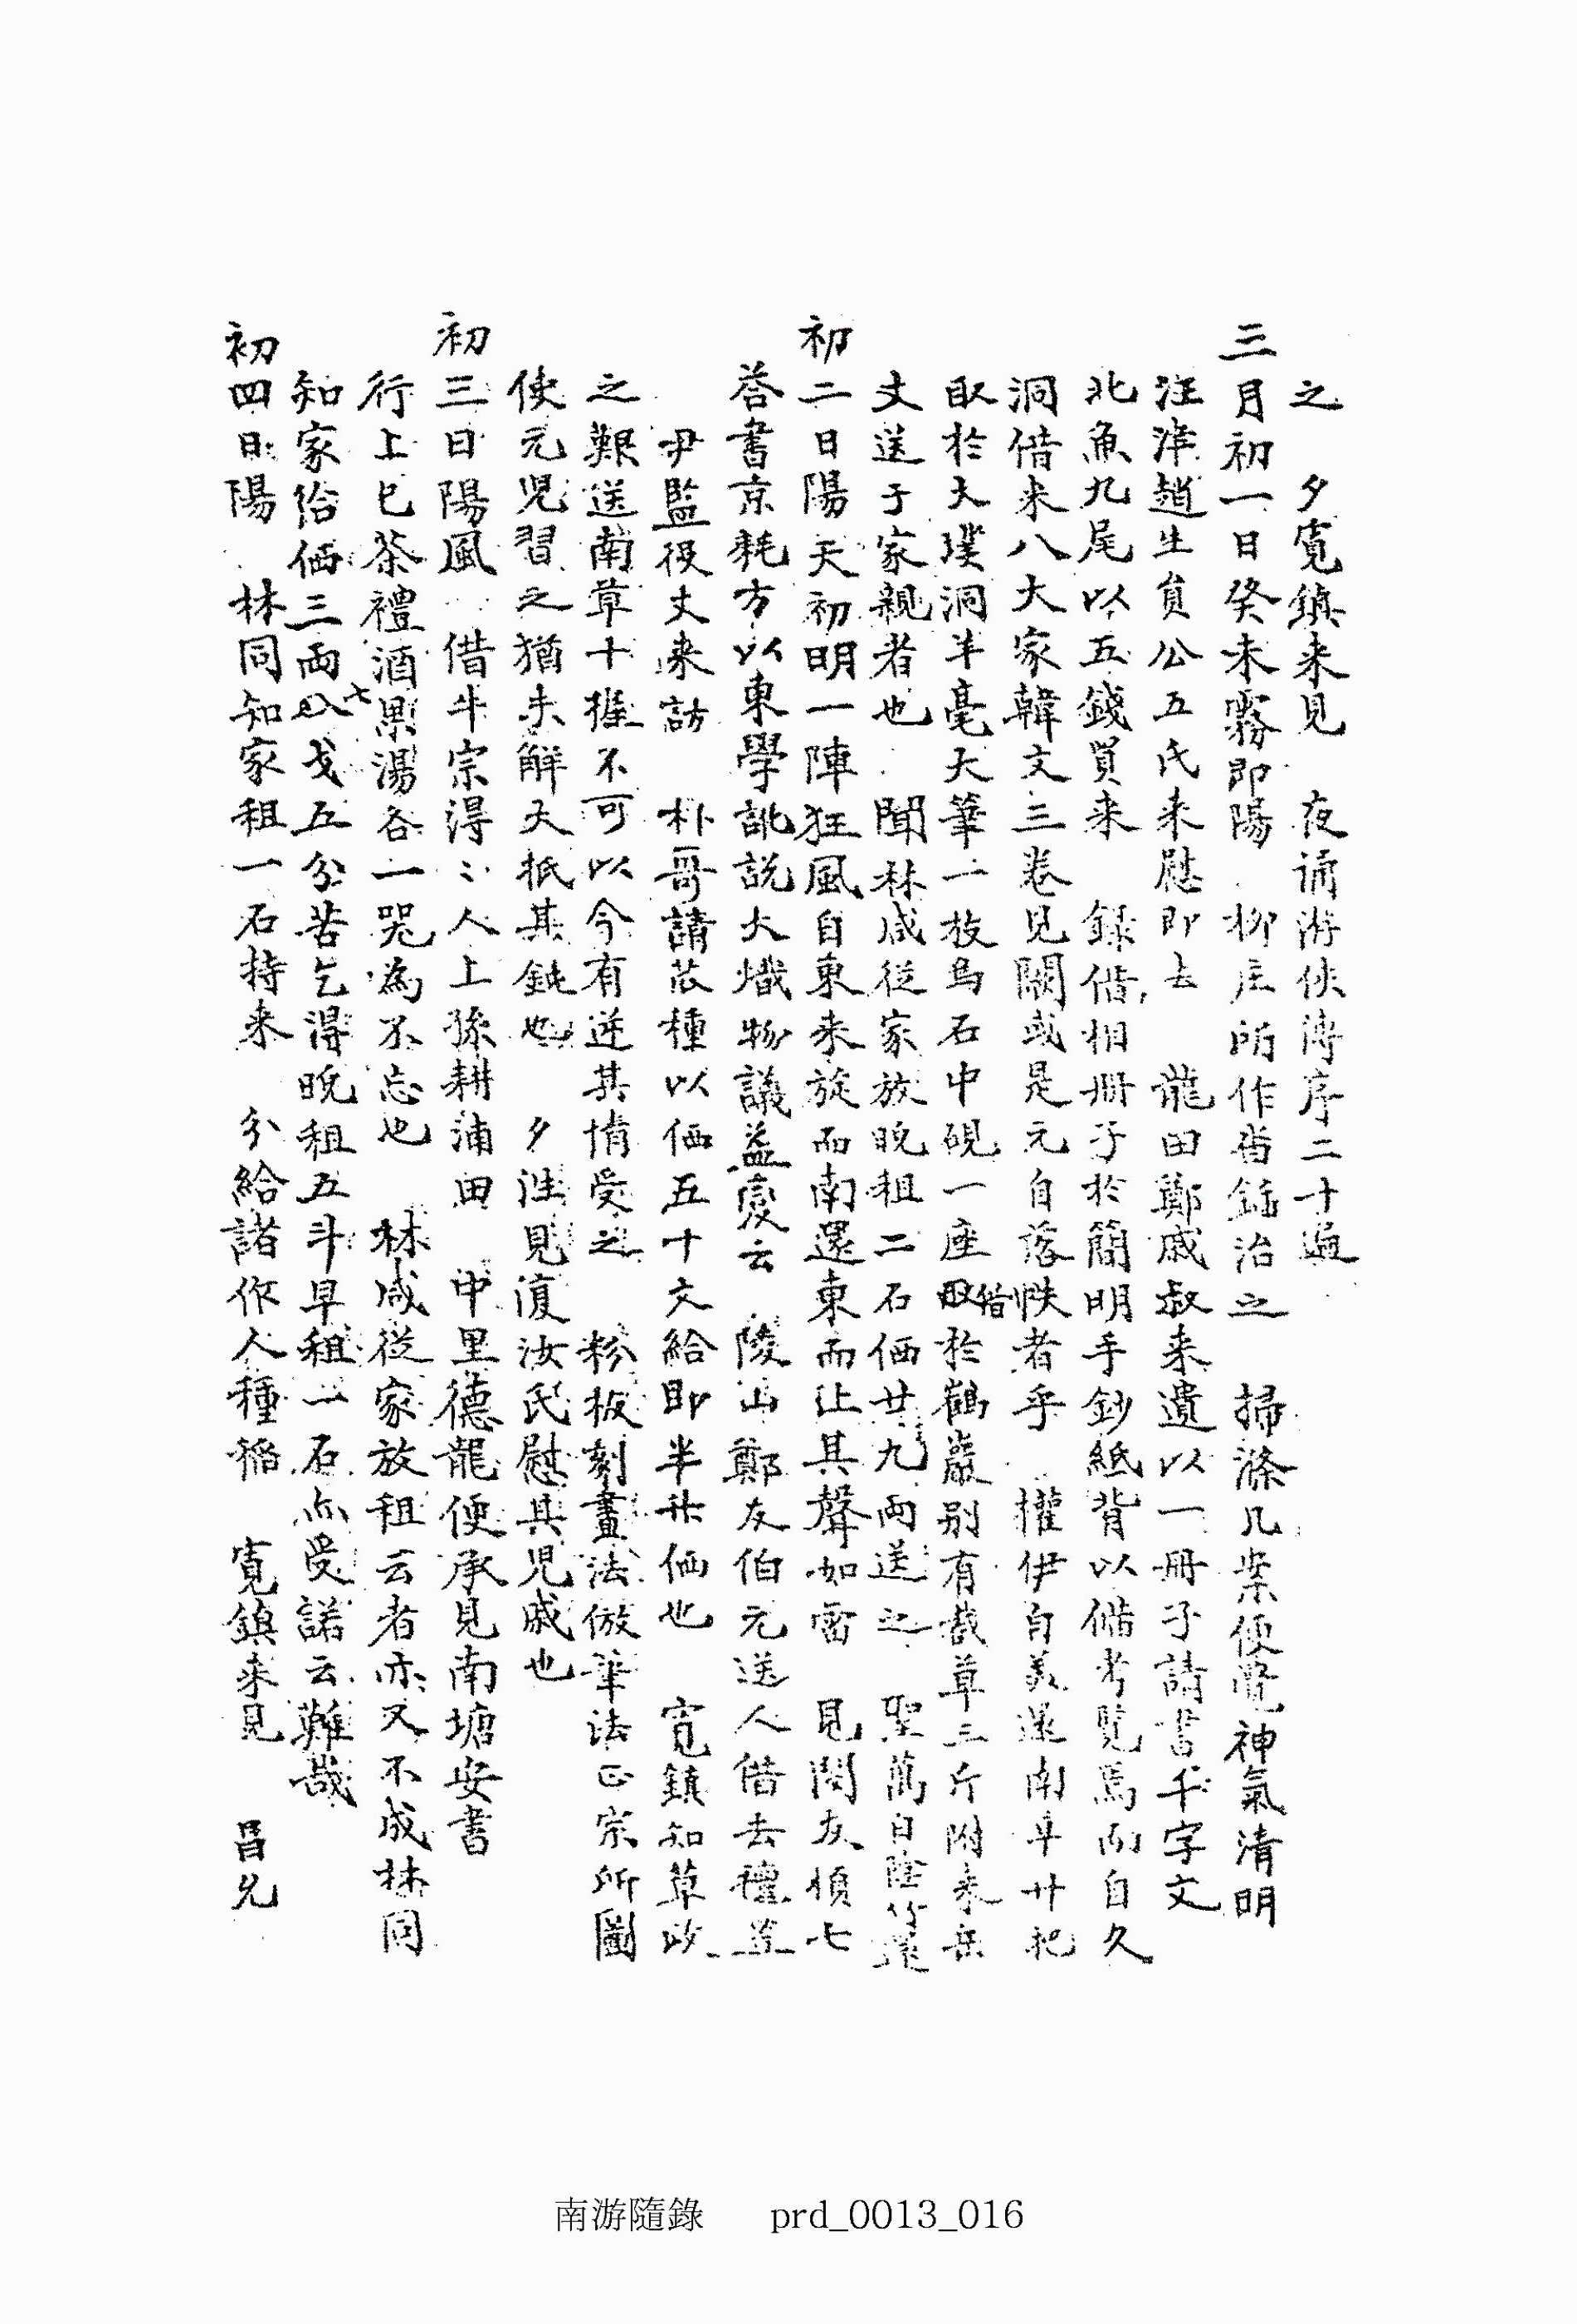 之 夕寬鎮来見 夜誦游俠傳序二十遍
三月初一日癸未霧即陽 柳庄所作皆銹治之 掃滌几案便覺神氣清明
汪津趙生員公五氏来慰即去 龍田鄭戚叔来遺以一冊子請書千字文
北魚九尾以五錢買来 録偕相冊子於簡明手鈔紙背以備考覽焉而自久
洞借来八大家韓文三卷見闕或是元自落帙者乎 權伊自義還南草廿把
取於大璞洞羊毫大筆一枝烏石中硯一座借取於鶴巖別有哉草三斤附来岳
丈送于家親者也 聞林咸従家放晩租二石価廿九両送之 聖萬自陰竹還
初二日陽天初明一陣狂風自東来旋而南還東而止其聲如雷 見閔友順七
答書京耗方以東學訛説大熾物議益震云 陵山鄭友伯元送人借去禮
尹監役丈来訪 朴哥請苽種以価五十文給即半升価也 寬鎮知草政
之艱送南草十握不可以今有逆其情受之 粉板刻畫法倣筆法正宗所圖
使元児習之猶未解夫抵其鈍也 夕往見復汝氏慰其児慼也
初三日陽風 借牛宗得〻人上孫耕浦田 中里德龍便承見南塘安書
行上巳茶禮酒果湯各一哭為不忘也 林咸従家放租云者亦又不成林同
知家給価三両七戔五分苦乞得晩租五斗早租一石亦受諾云難哉
初四日陽 林同知家租一石持来 分給諸作人種稲 寬鎮来見 昌兄
南游隨錄 prd_0013_016